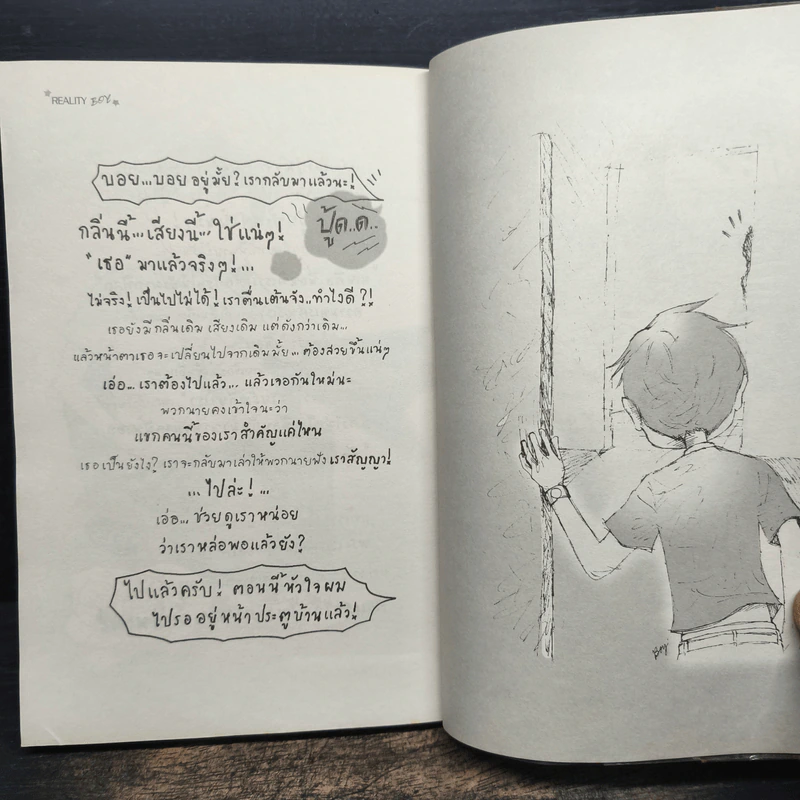 REALITY BOY
บอย...บอย อยู่มั้ย? เรากลับมาแล้วนะ!
กลิ่นนี้... เสียงนี้... ใช่แน่ๆ!
ปู้ด..ด..
"เธอ" มาแล้วจริงๆ!...
ไม่จริง! เป็นไปไม่ได้! เราตื่นเต้นจัง..ทำไงดี?!
เธอยังมีกลิ่นเดิม เสียงเดิม แต่ดังกว่าเดิม...
แล้วหน้าตาเธอจะเปลี่ยนไปจากเดิมมั้ย... ต้องสวยขึ้นแน่ๆ
เอ่อ... เราต้องไปแล้ว... แล้วเจอกันใหม่นะ
พวกนายคงเข้าใจนะว่า
แขกคนนี้ของเราสำคัญแค่ไหน
เธอเป็นยังไง? เราจะกลับมาเล่าให้พวกนายฟัง เราสัญญา!
... ไปล่ะ! ...
เอ่อ... ช่วยดูเราหน่อย
ว่าเราหล่อพอแล้วยัง?
ไปแล้วครับ! ตอนนี้หัวใจผม
ไปรออยู่หน้าประตูบ้านแล้ว!
Boy